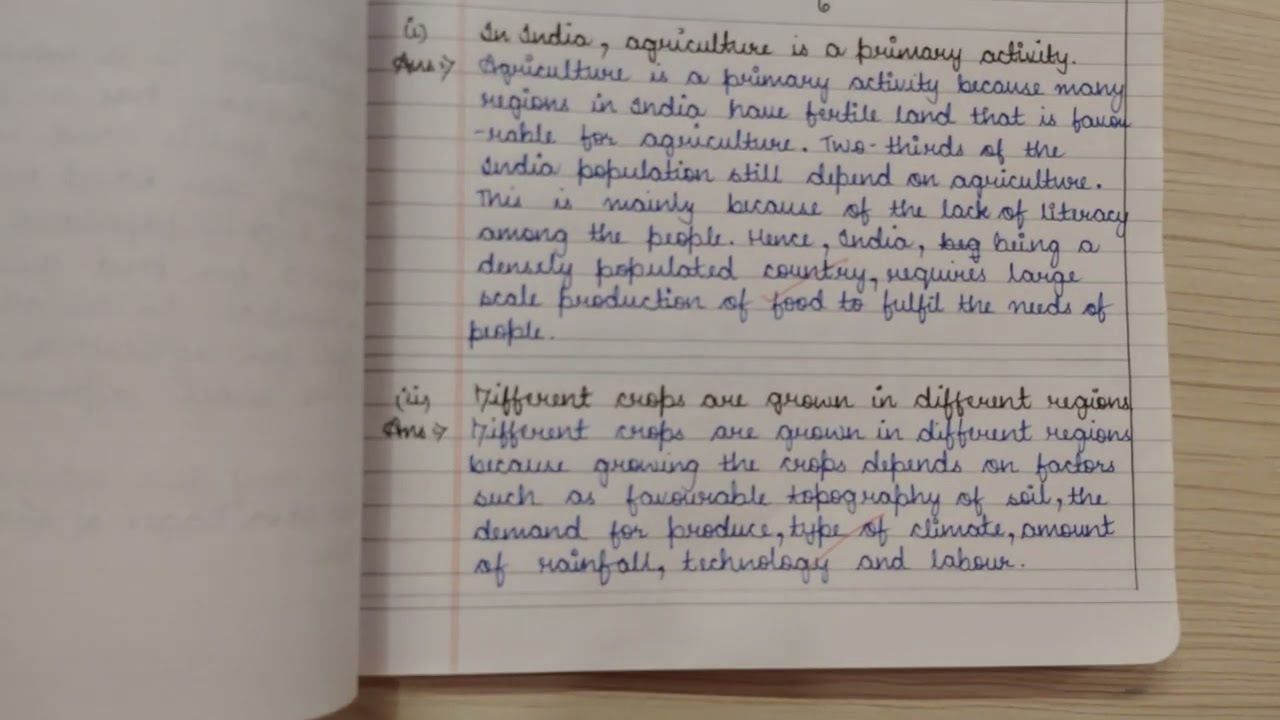 6
(i) In India, agriculture is a primary activity.
Ans:→ Agriculture is a primary activity because many
regions in India have fertile land that is favou
-rable for agriculture. Two-thirds of the
India population still depend on agriculture.
This is mainly because of the lack of literacy
among the people. Hence, India, beg being a
densely populated country, requires large
scale production of food to fulfil the needs of
people.
(ii) Different crops are grown in different regions
Ans:→ Different crops are grown in different regions
because growing the crops depends on factors
such as favourable topography of soil, the
demand for produce, type of climate, amount
of rainfall, technology and labour.